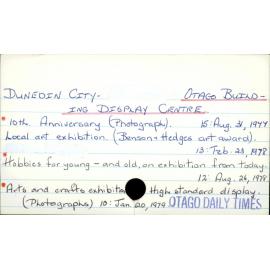 DUNEDIN CITY- OTAGO BUILD-
ING DISPLAY CENTRE.
* 10th Anniversary (Photograph). 15: Aug. 31, 1977
Local art exhibition. (Benson & Hedges art award).
13: Feb. 23, 1978
* Hobbies for young - and old, on exhibition from today.
12: Aug. 26, 1978.
* Arts and crafts exhibition High standard display.
(Photographs) 10: Jan. 20, 1979 OTAGO DAILY TIMES